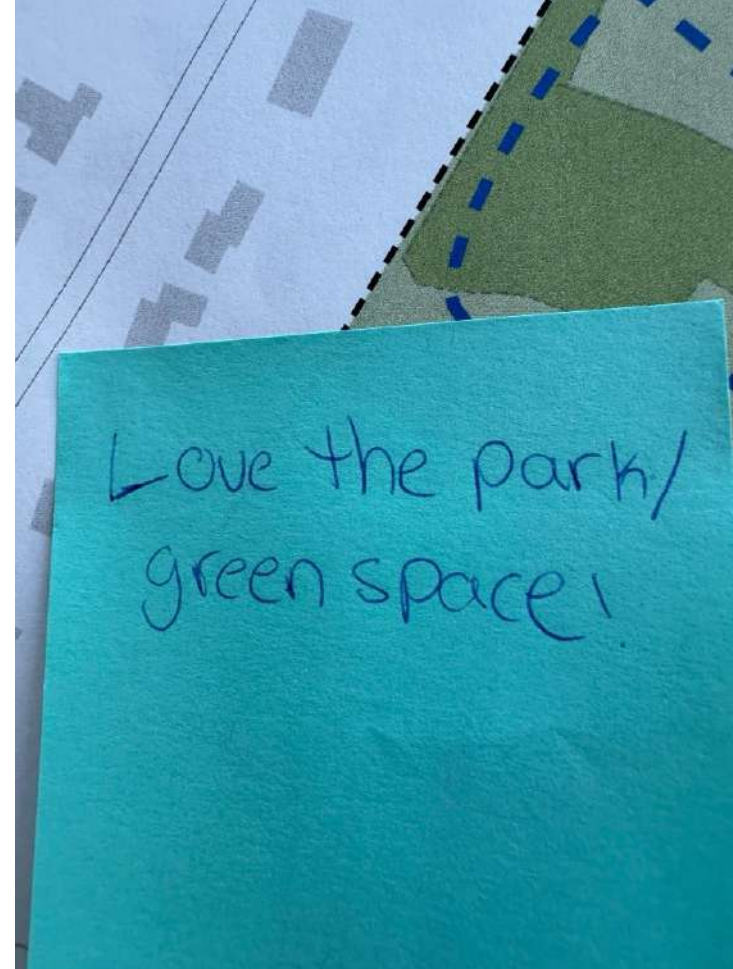 Love the park/
green space!